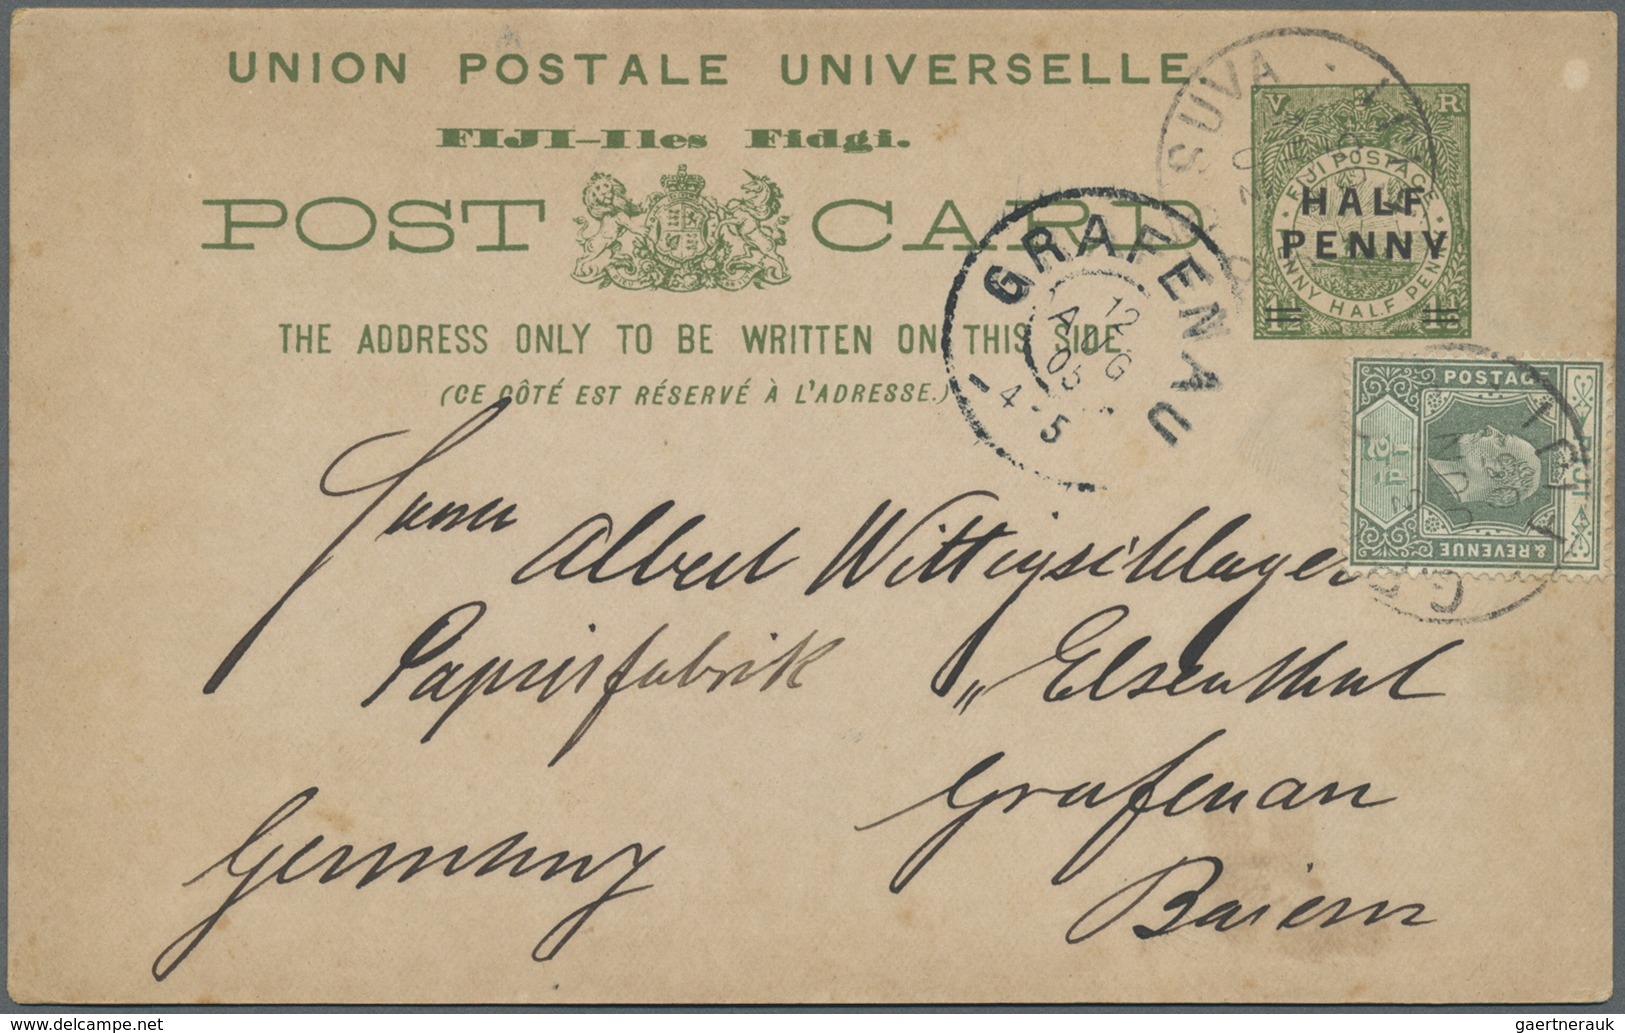 UNION POSTALE UNIVERSELLE.
FIJI–Iles Fidgi.
POST CARD
THE ADDRESS ONLY TO BE WRITTEN ON THIS SIDE
(CE CÔTÉ EST RÉSERVÉ À L'ADRESSE.)
V R
FIJI POSTAGE
HALF
PENNY
PENNY HALF PENNY
SUVA
GRAFENAU
12
AUG
05
4-5
POSTAGE
& REVENUE
FIJI
JUN
Herrn
Albert Wittinschlager
Papierfabrik „Elsenthal
Grafenau
Germany
Baiern
gaertnerauk